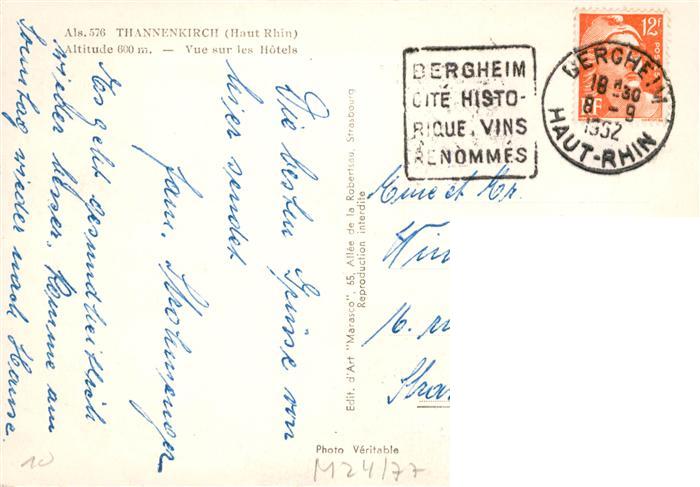 Als. 576 THANNENKIRCH (Haut Rhin)
Altitude 600 m. — Vue sur les Hôtels
Die besten Grüsse von
hier sendet
Fam.
Es geht gesundheitlich
wieder besser. Komme am
Sonntag wieder nach Hause.
Edit. d'Art "Marasco", 65, Allée de la Robertsau, Strasbourg
Reproduction interdite
Photo Véritable
M24/77
10
BERGHEIM
CITÉ HISTO-
RIQUE. VINS
RENOMMÉS
BERGHEIM
18 H30
8 - 9
1952
HAUT-RHIN
12F
RF
Mme et Mr.
Win
16. ru
Stra